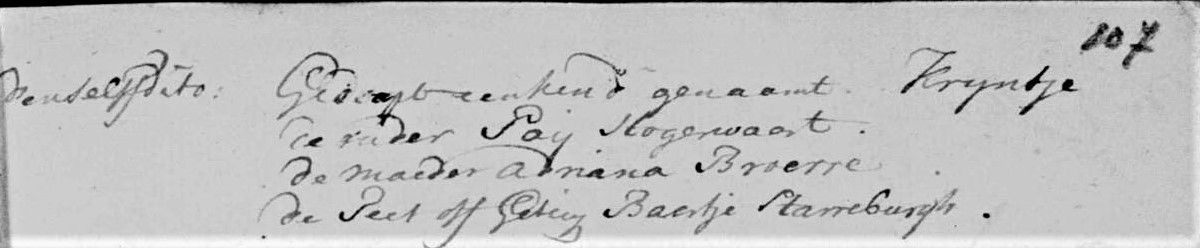 107
denselffdito: Gedoopt een kend genaamt. Kryntje
de vader Paij Hogerwaart.
de moeder Adriana Broerre
de Peet off Getuy Baertje Starreburgh.